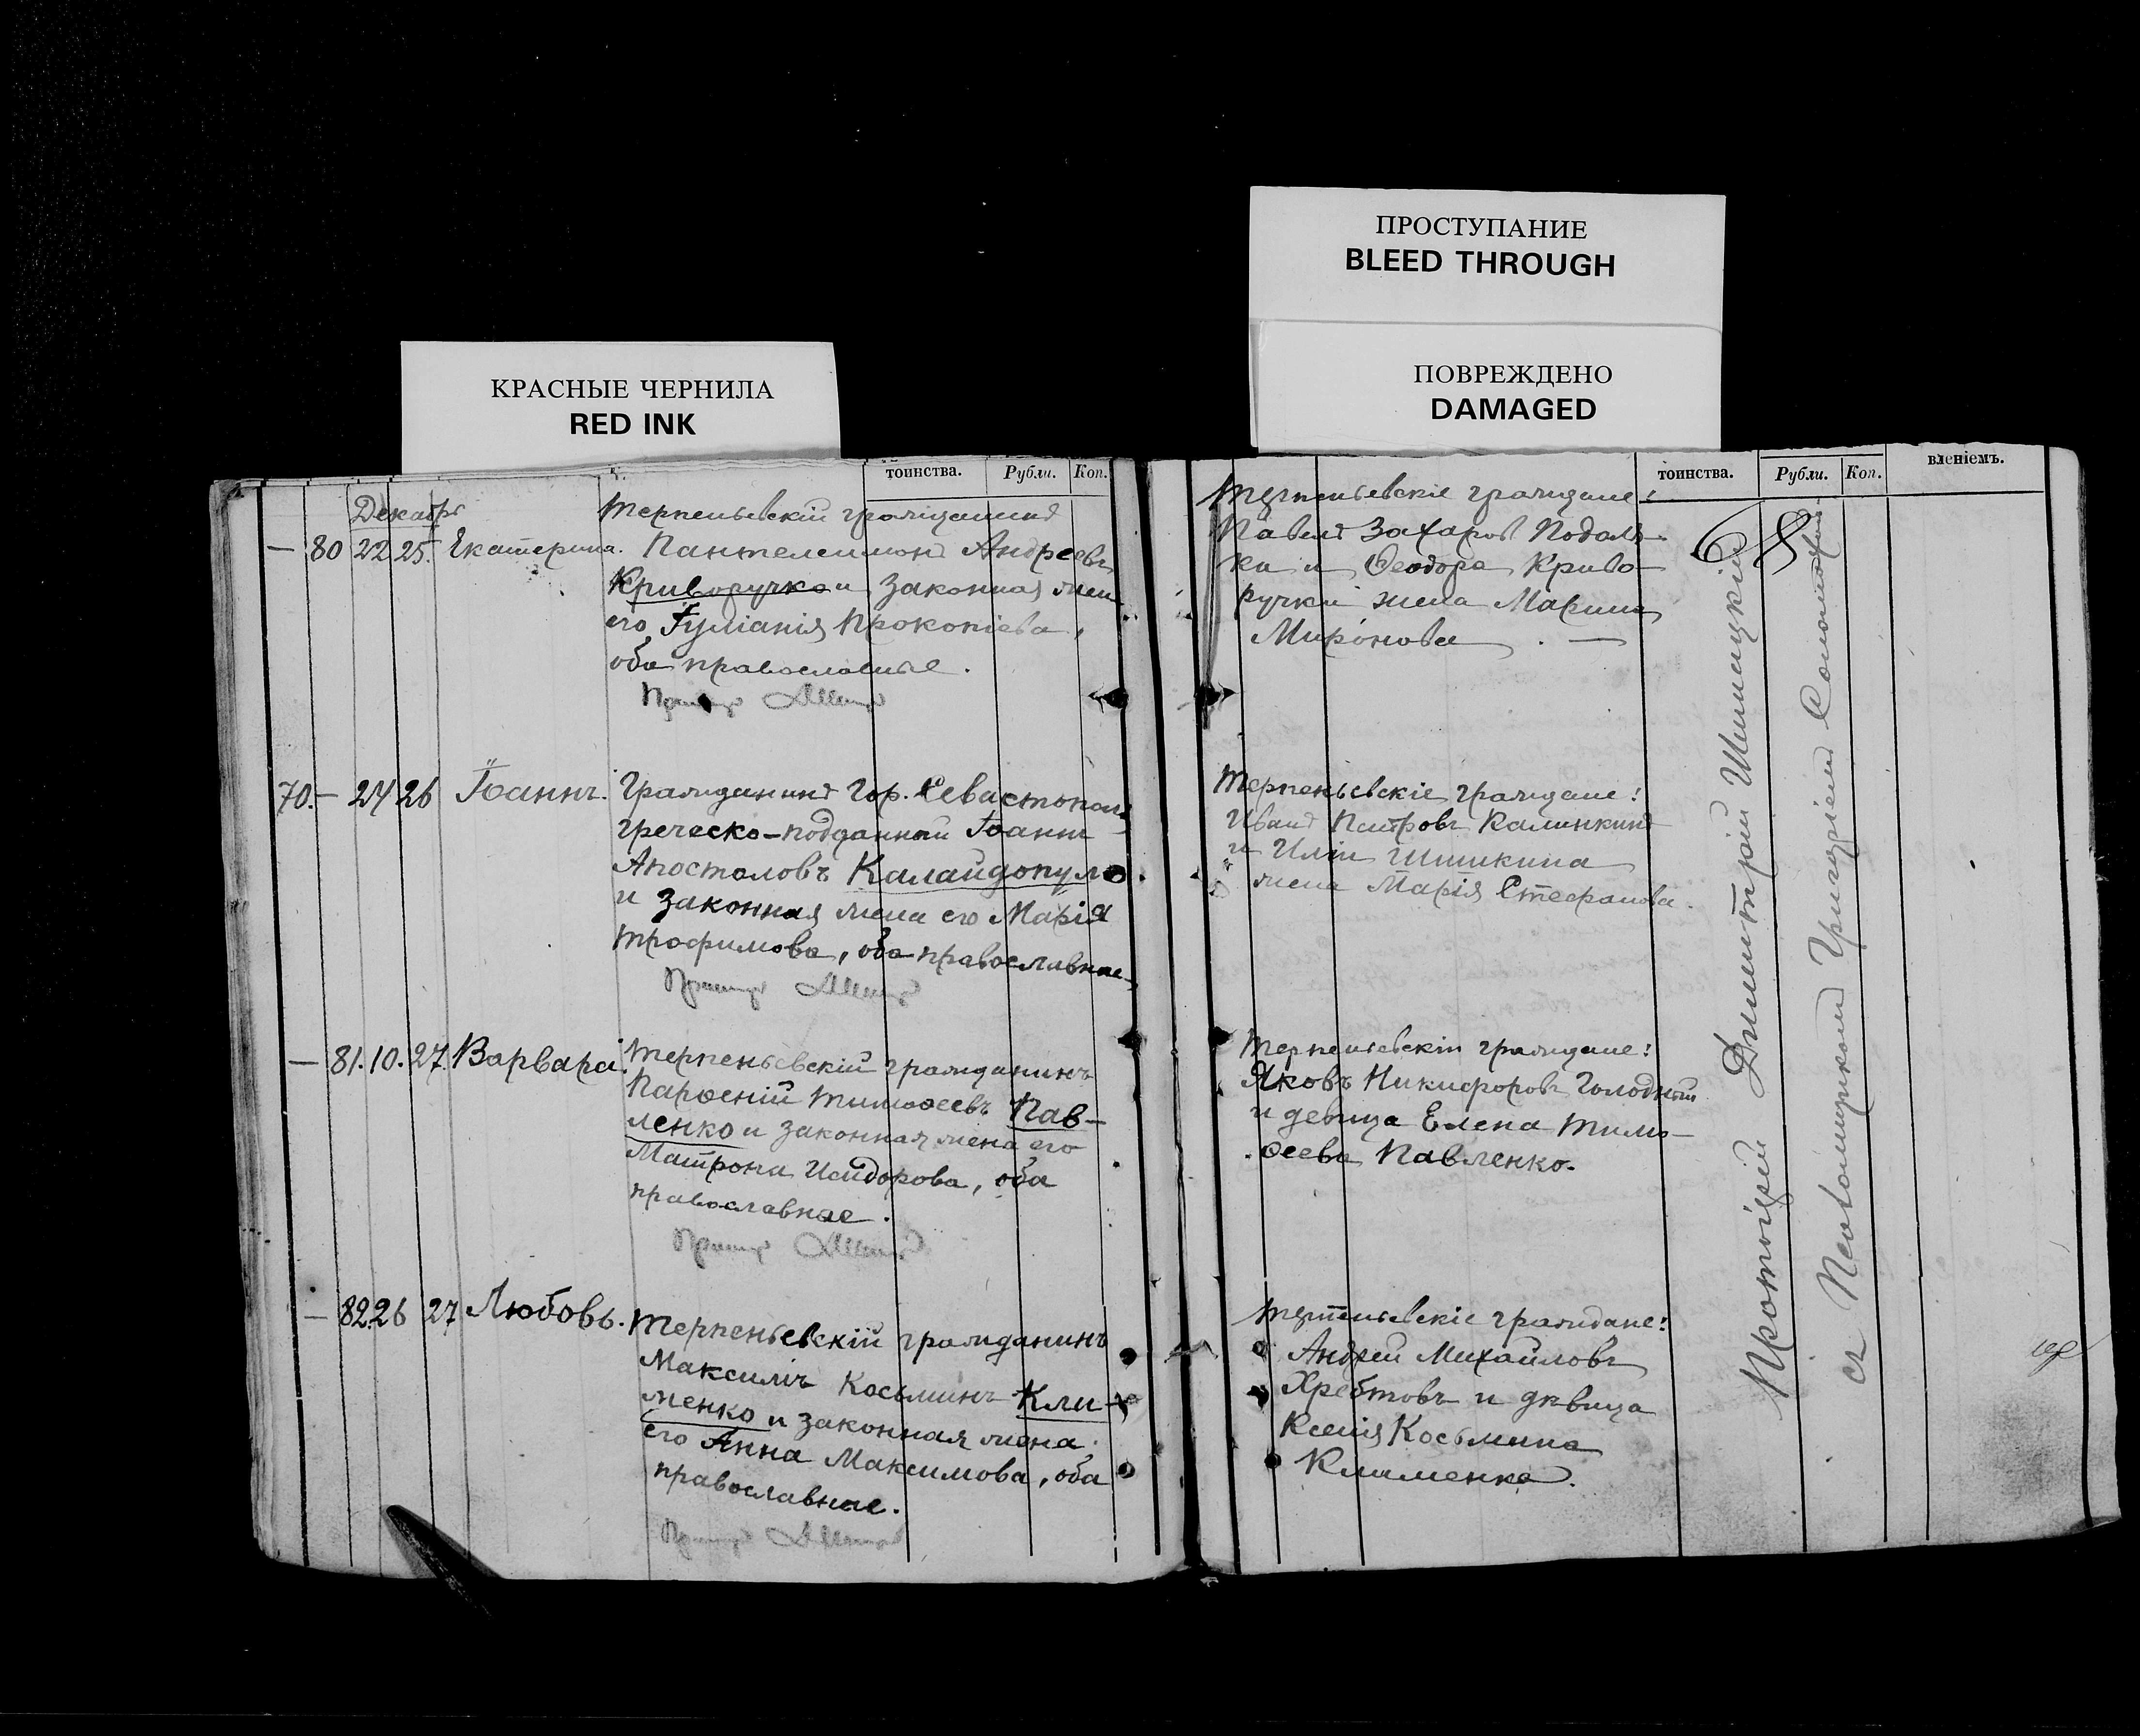 ПРОСТУПАНИЕ
BLEED THROUGH
ПОВРЕЖДЕНО
DAMAGED
КРАСНЫЕ ЧЕРНИЛА
RED INK
тоинства. Рубли. Коп.
Декабрь
Терпеньевскій гражданинъ
— 80 22 25. Екатерина. Пантелеимонъ Андреевъ
Криворучко и законная жена
его Іуліанія Прокопіева,
оба православные.
70. — 24 26 Іоаннъ. Гражданинъ гор. Севастополя
греческо-подданный Іоаннъ
Апостоловъ Калайдопуло
и законная жена его Марія
Трофимова, оба православные
— 81. 10. 27. Варвара. Терпеньевскій гражданинъ
Парѳеній Тимоѳеевъ Пав-
ленко и законная жена его
Матрона Исидорова, оба
православные.
— 82. 26 27 Любовь. Терпеньевскій гражданинъ
Максимъ Косьминъ Кли-
менко и законная жена
его Анна Максимова, оба
православные.
тоинства. Рубли. Коп. вленіемъ.
Терпеньевскіе граждане:
Павелъ Захаровъ Подоль-
ка и Ѳеодора Криво-
ручки жена Марина
Миронова. —
68
Терпеньевскіе граждане:
Иванъ Петровъ Калинкинъ
и Иліи Шишкина
жена Марія Стефанова.
Терпеньевскіи граждане:
Яковъ Никифоровъ Голодный
и девица Елена Тимо-
ѳеева Павленко.
Терпеньевскіе граждане:
Андрей Михайловъ
Хребтовъ и дѣвица
Ксенія Косьмина
Клименко.
Протоіерей Димитрій
съ Псаломщикомъ Григоріемъ